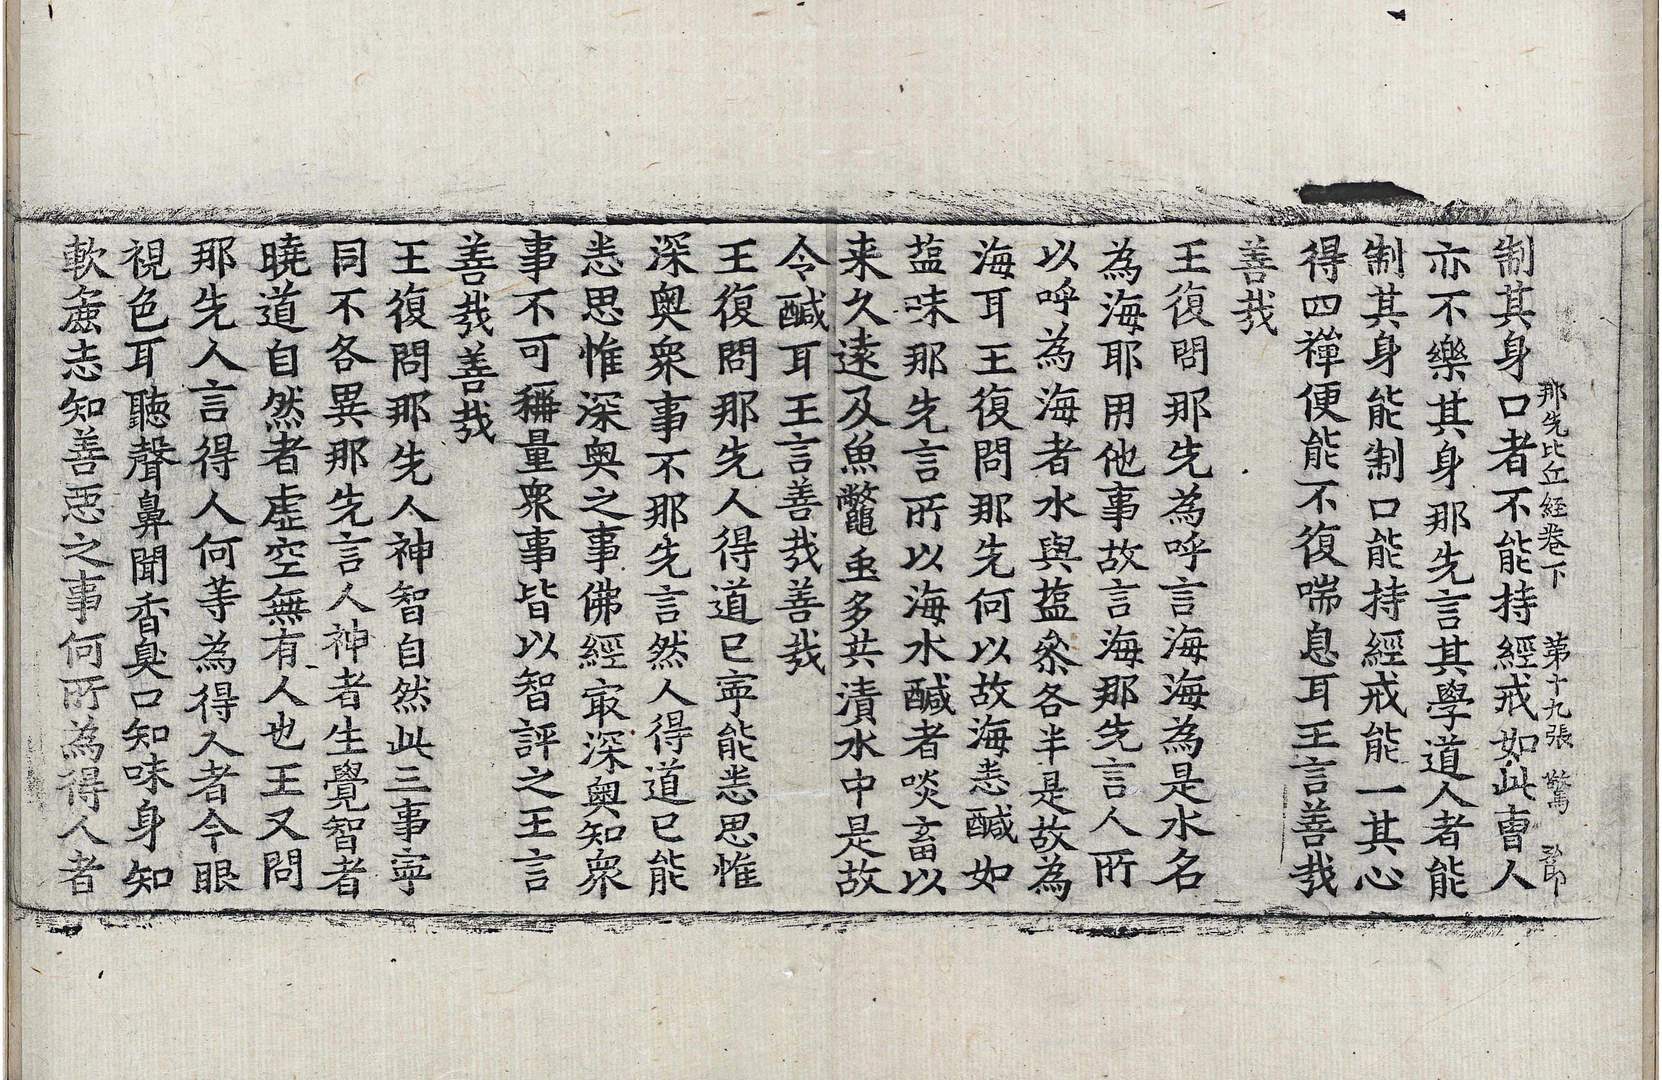 那先比丘経卷下 第十九張 驚
制其身口者不能持經戒如此曺人
亦不樂其身那先言其學道人者能
制其身能制口能持經戒能一其心
得四禪便能不復喘息耳王言善㢤
善㢤
王復問那先為呼言海海為是水名
為海耶用他事故言海那先言人所
以呼為海者水與䀋叅各半是故為
海耳王復問那先何以故海悉醎如
䀋味那先言所以海水醎者啖畜以
来久遠及魚鼈䖝多共漬水中是故
令醎耳王言善㢤善㢤
王復問那先人得道已寧能悉思惟
深奧衆事不那先言然人得道已能
悉思惟深奧之事佛經㝡深奧知衆
事不可稱量衆事皆以智評之王言
善㢤善㢤
王復問那先人神智自然此三事寧
同不各異那先言人神者生覺智者
曉道自然者虛空無有人也王又問
那先人言得人何等為得人者今眼
視色耳聽聲鼻聞香臭口知味身知
軟麁志知善惡之事何所為得人者